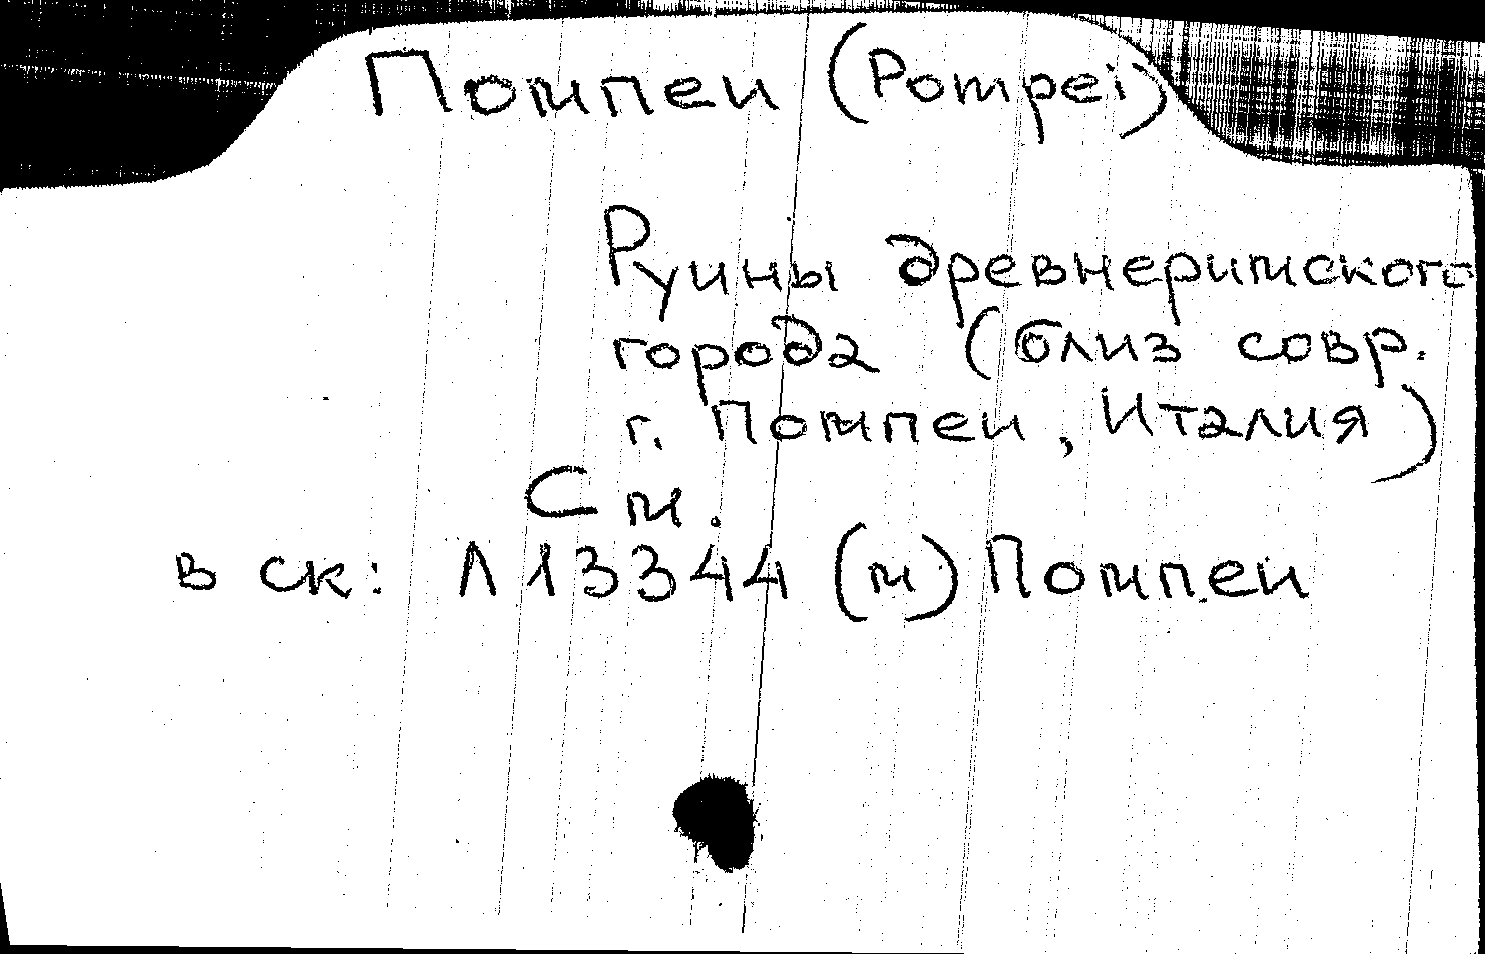 Помпеи (Pompei)
Руины древнеримского
города (близ совр.
г. Помпеи, Италия)
См.
в ск: Л13344 (м) Помпеи